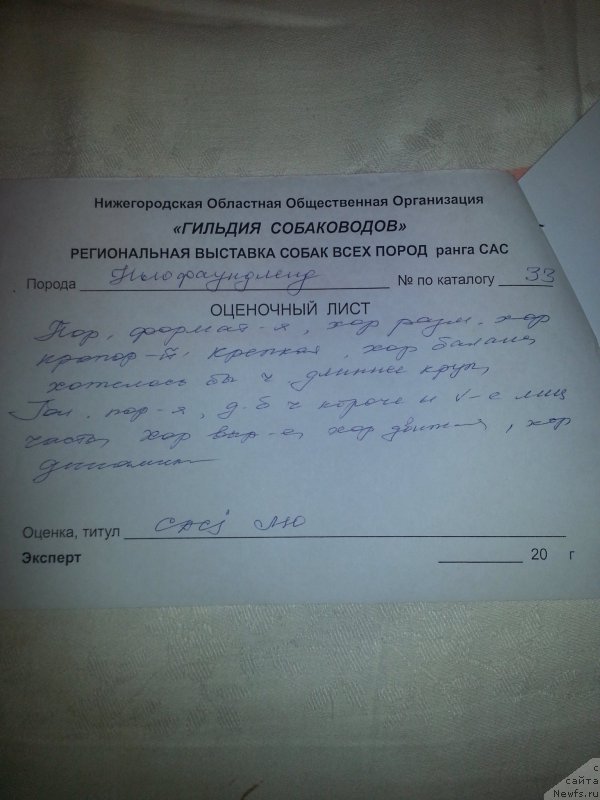 Нижегородская Областная Общественная Организация
«ГИЛЬДИЯ СОБАКОВОДОВ»
РЕГИОНАЛЬНАЯ ВЫСТАВКА СОБАК ВСЕХ ПОРОД ранга САС
Порода Ньюфаундленд № по каталогу 33
ОЦЕНОЧНЫЙ ЛИСТ
Пор, формат-я, хор разм. хор
крепкая, хор баланс,
хотелось бы ч длиннее круп,
Гол. пор-я, д.б ч короче и лиц
часть, хор выр-е, хор движ-я, хор
Оценка, титул CACj ЛЮ
Эксперт 20 г
с
сайта
Newfs.ru